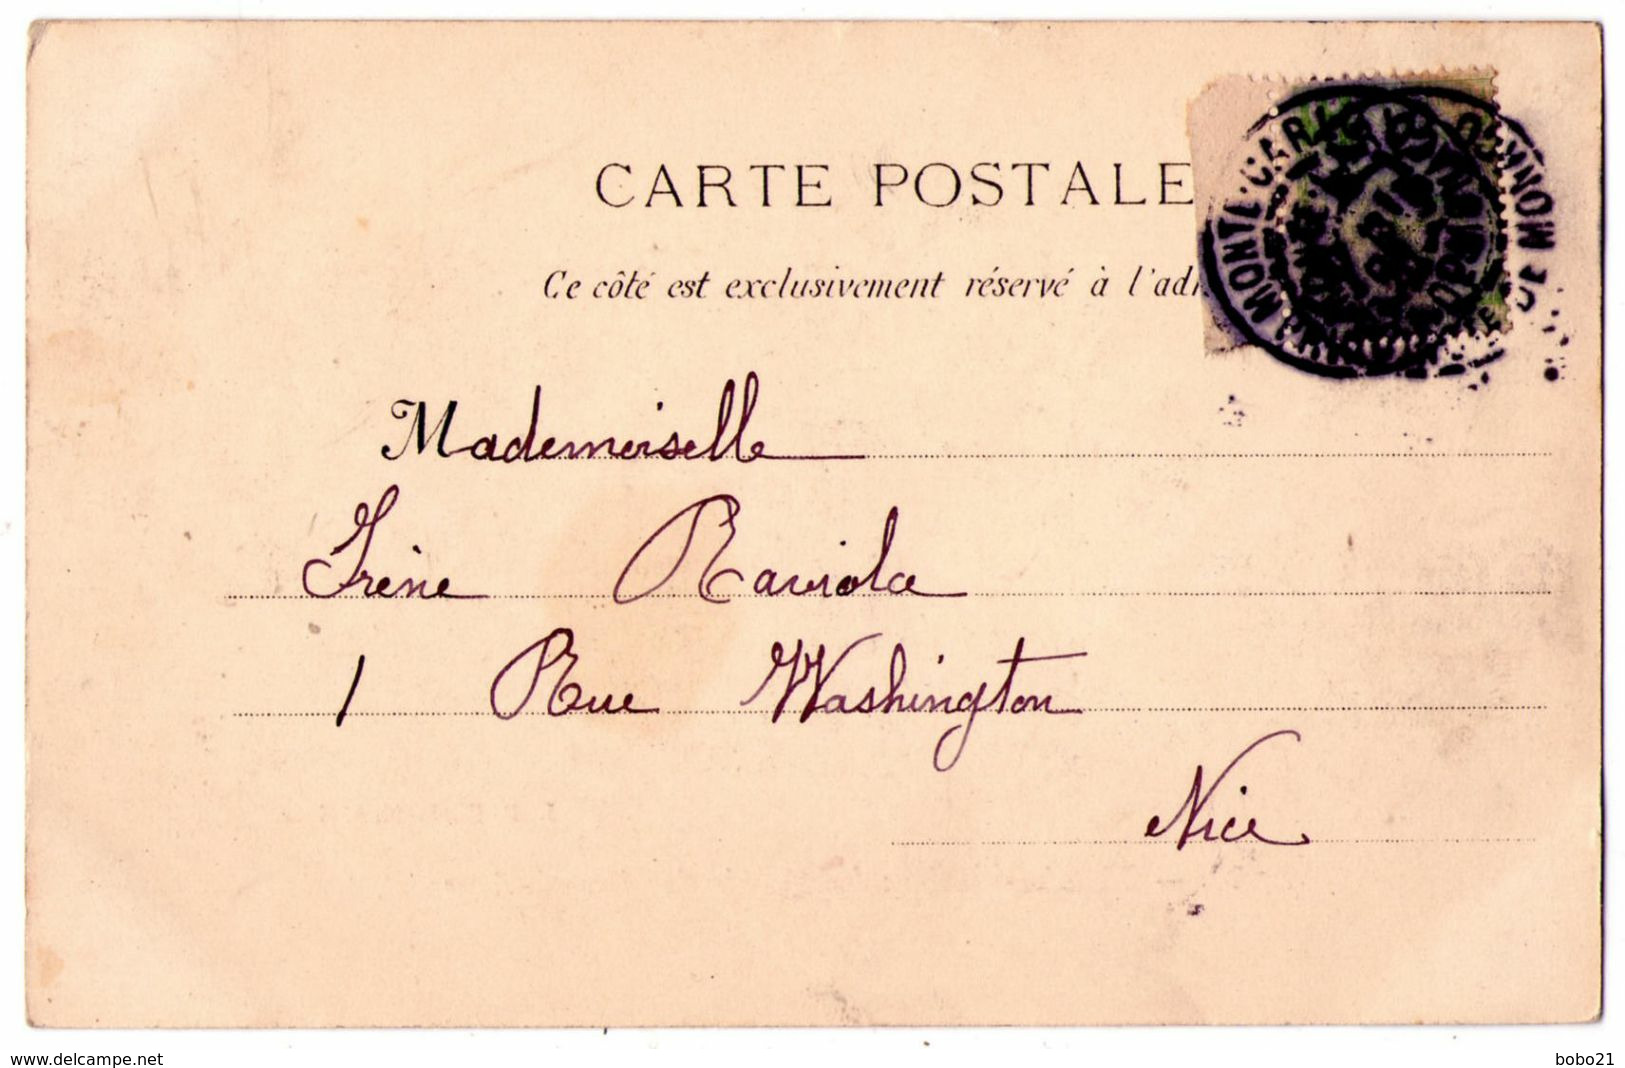 CARTE POSTALE
Ce côté est exclusivement réservé à l'adr
MONTE CARLO
Mademoiselle
Irène Raviola
1 Rue Washington
Nice
www.delcampe.net
bobo21